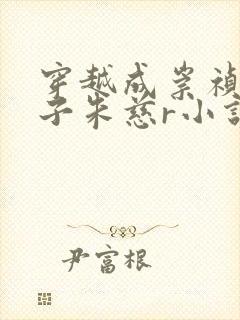 穿越成崇禎
子朱慈r小說
尹富根